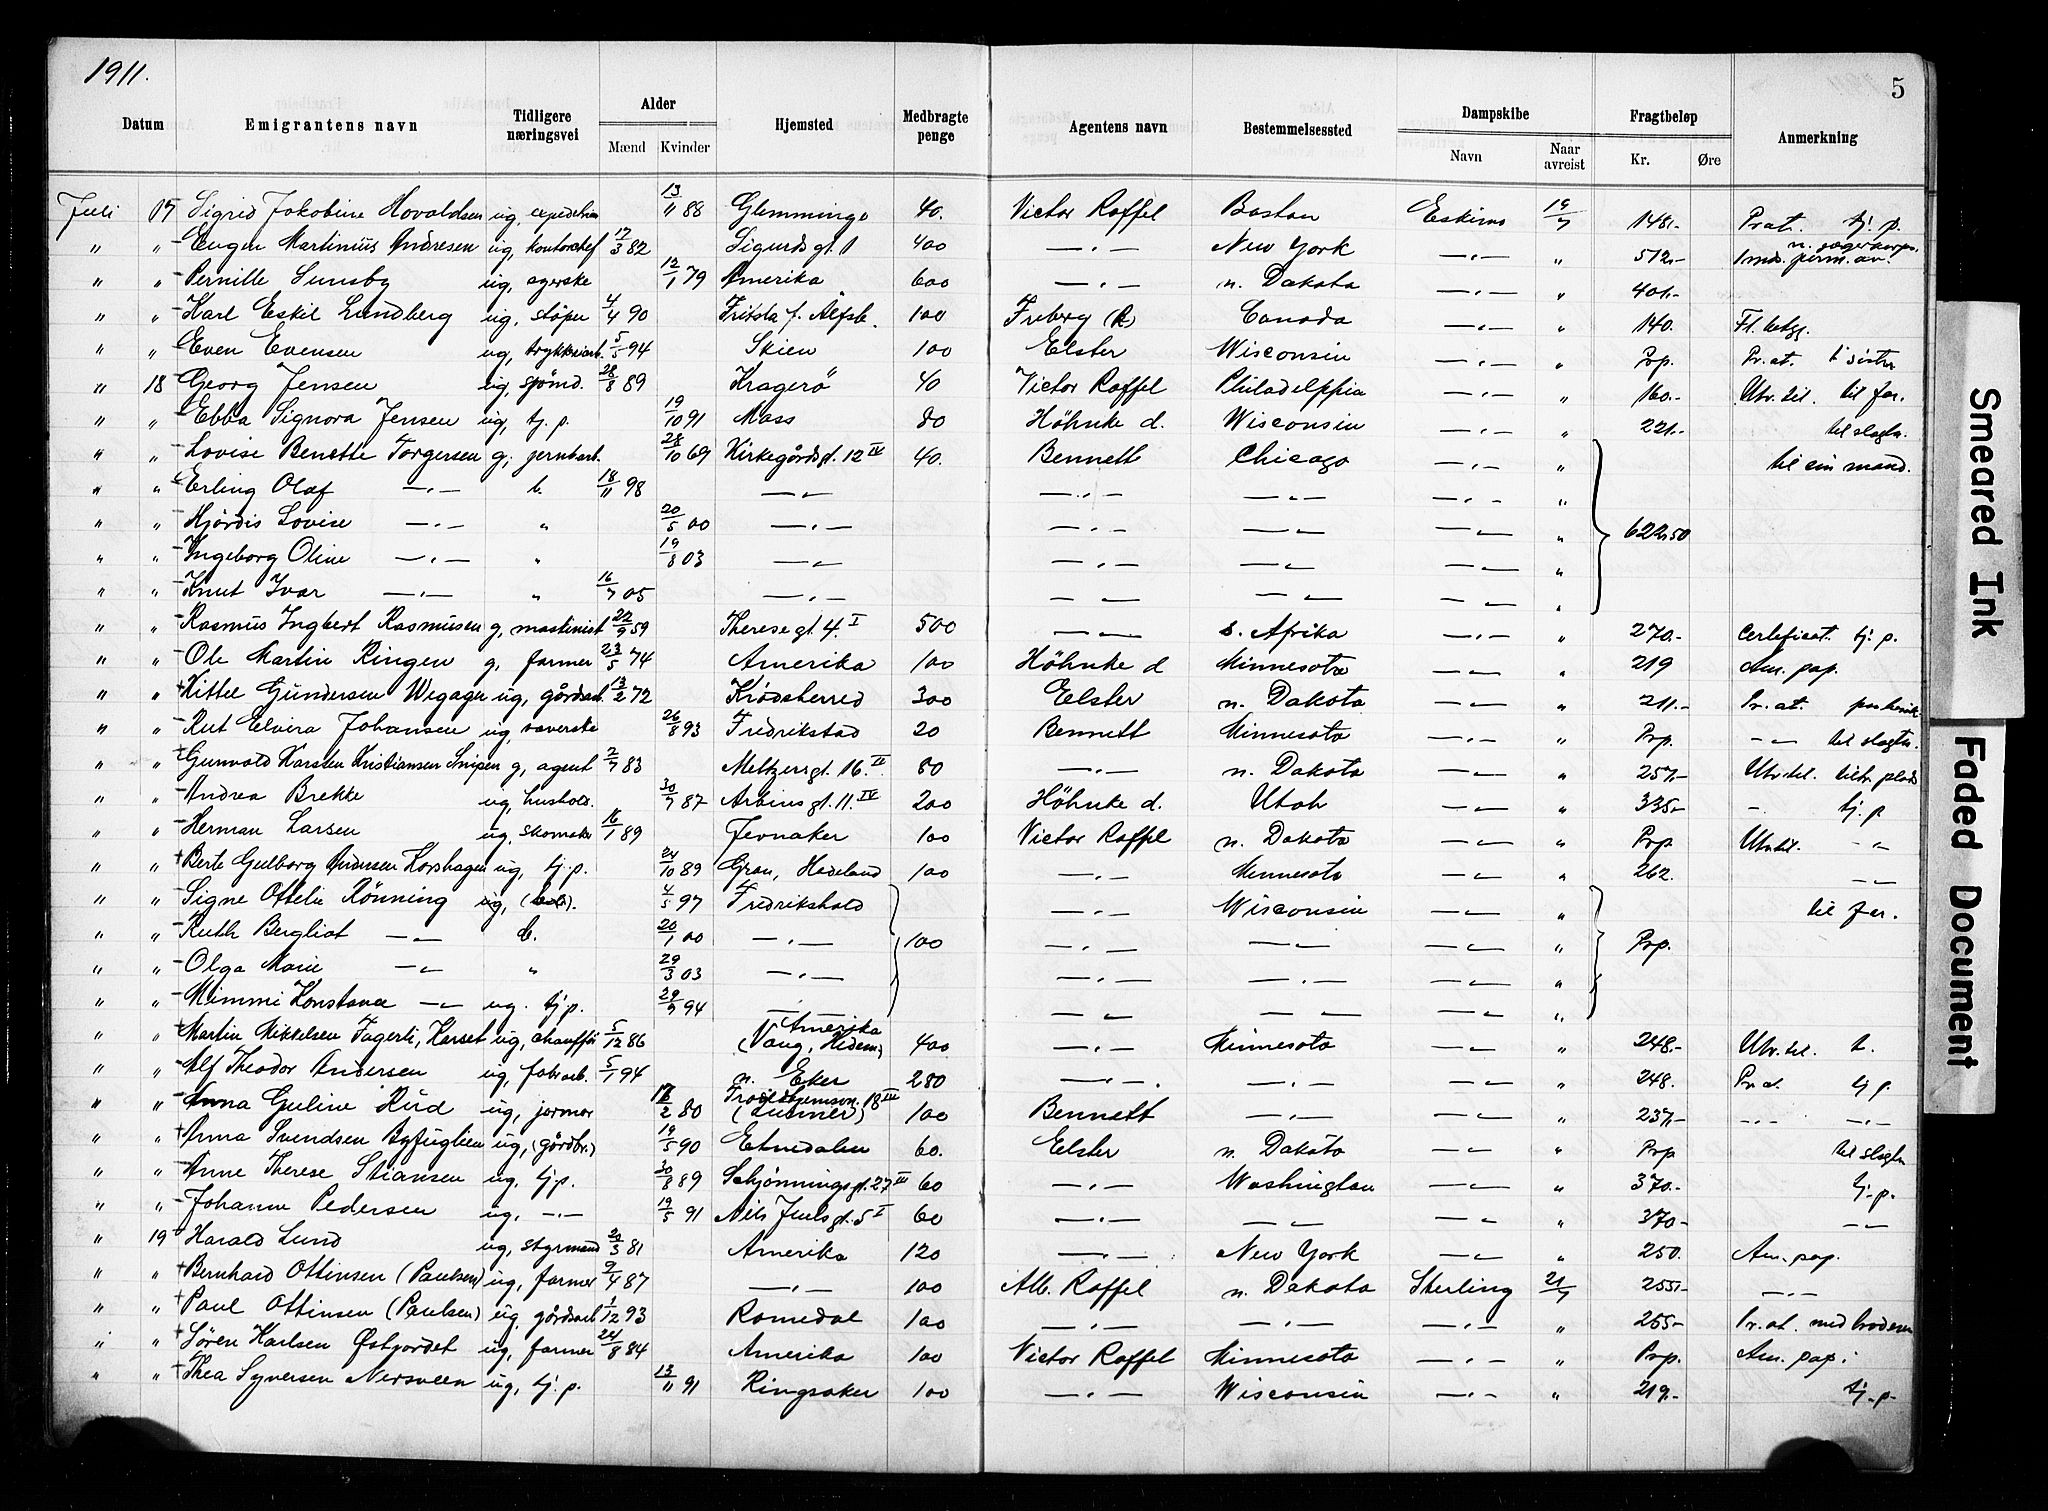 1911.
5
Datum Emigrantens navn Tidligere næringsvei Alder Mænd Kvinder Hjemsted Medbragte penge Agentens navn Bestemmelsessted Dampskibe Navn Naar avreist Fragtbeløp Kr. Øre Anmerkning
Juli 17 Sigrid Jakobine Hovaldsen ug, 13/11 88 Glemminge 40. Victor Raffel Boston Eskimo 19/7 148.- tj. p.
" " Eugen Martinius Andresen ug, kontorchef 17/3 82 Sigurdsgt. 1 400 —"— New York —"— " 512.-
" " Pernille Sunsby ug, 12/1 79 Amerika 600 —"— n. Dakota —"— " 401.-
" " Karl Eskil Lundberg ug, støper 4/4 90 100 Freberg (R) Canada —"— " 140.
" " Even Evensen ug, 5/5 94 Skien 100 Elster Wisconsin —"— " Prp. Pr. at.
" 18 Georg Jensen ug, sjømd. 28/8 89 Kragerø 40 Victor Raffel Philadelphia —"— " 160.- Utv. til. til far.
" " Ebba Signora Jensen ug, tj. p. 19/10 91 Mass 80 Höhnke d. Wisconsin —"— " 221.- til slagtn.
" " Lovise Benette Torgersen g, jernbarb. 28/10 69 Kirkegårdsgt. 12 IV 40. Bennett Chicago —"— " til sin mand.
" " Erling Olaf —"— b. 18/11 98 —"— —"— —"— —"— "
" " Hjørdis Lovise —"— " 20/5 00 —"— —"— —"— —"— " 622.50
" " Ingeborg Oline —"— " 19/8 03 —"— —"— —"— —"— "
" " Knut Ivar —"— " 16/7 05 —"— —"— —"— —"— "
" " Rasmus Ingbert Rasmussen g, maskinist 22/9 59 Theresegt. 4. I 500 —"— s. Afrika —"— " 270.- Certeficat. tj. p.
" " Ole Martin Ringen g, farmer 23/5 74 Amerika 100 Höhnke d Minnesota —"— " 219 Am. pap.
" " Kittel Gundersen Wegager ug, gårdsarb. 13/2 72 Krødsherred 300 Elster n. Dakota —"— " 211.- Pr. at.
" " Rut Elvira Johansen ug, væverske 26/8 93 Fredrikstad 20 Bennett Minnesota —"— " Prp. —"— til slagtn.
" " Gunvald Karsten Kristiansen Snipen g, agent 2/7 83 Meltzersgt. 16. II 80 —"— n. Dakota —"— " 257.- Utv. til.
" " Andrea Brekke ug, hushold. 30/7 87 Arbinsgt. 11. IV 200 Höhnke d. Utah —"— " 335.- — tj. p
" " Herman Larsen ug, skomaker 16/1 89 Jevnaker 100 Victor Raffel n. Dakota —"— " Prp Utv. til. —"—
" " Berte Gulborg Andersen Korshagen ug, tj. p. 24/10 89 Gran, Hadeland 100 —"— Minnesota —"— " 262. —"—
" " Signe Ottelie Rönning ug, 4/5 97 Fredrikshald —"— Wisconsin —"— " til far.
" " Ruth Bergliot —"— b. 20/1 00 —"— 100 —"— —"— —"— " Prp.
" " Olga Marie —"— " 29/3 03 —"— —"— —"— —"— "
" " Mimmi Konstanse —"— ug. tj. p. 29/9 94 —"— —"— —"— —"— "
" " Martin Mikkelsen Fagerli, Karset ug, chauffør 5/12 86 Amerika (Vang, Hedem.) 400 —"— Minnesota —"— " 248.- Utv. til. t.
" " Alf Theodor Andersen ug, fabarb. 5/1 94 n. Eker 280 —"— —"— —"— " 248. Pr. at. tj. p.
" " Anna Guline Rud ug, jormor 17/2 80 18 III (Lunner) 100 Bennett —"— —"— " 237.- —"— —"—
" " Anna Svendsen Byfuglien ug, (gårdbr.) 19/5 90 Etnedalen 60. Elster n. Dakota —"— " Prp til slagtn
" " Anne Therese Stiansen ug, tj. p. 30/8 89 Schjønningsgt. 27 III 60 —"— Washington —"— " 370.- tj. p.
" " Johanne Pedersen ug, —"— 19/5 91 Nils Juelsgt. 5 I 60 —"— —"— —"— " 370- —"—
" 19 Harald Lund ug, styrmand 20/3 81 Amerika 120 —"— New York —"— " 250. Am. pap.
" " Bernhard Ottinsen (Paulsen) ug, farmer 9/4 87 —"— 100 Alb. Raffel n. Dakota Sterling 21/7 255.- —"—
" " Paul Ottinsen (Paulsen) ug, gårdsarb 1/12 93 Romedal 100 —"— —"— —"— " 265.- Pr. at. med broderen
" " Søren Karlsen Østjordet ug, farmer 24/8 84 Amerika 100 Victor Raffel Minnesota —"— " Prp. Am. pap.
" " Thea Syversen Nersveen ug, tj. p. 13/11 91 Ringsaker 100 —"— Wisconsin —"— " 219.- tj. p.
Smeared Ink
Faded Document